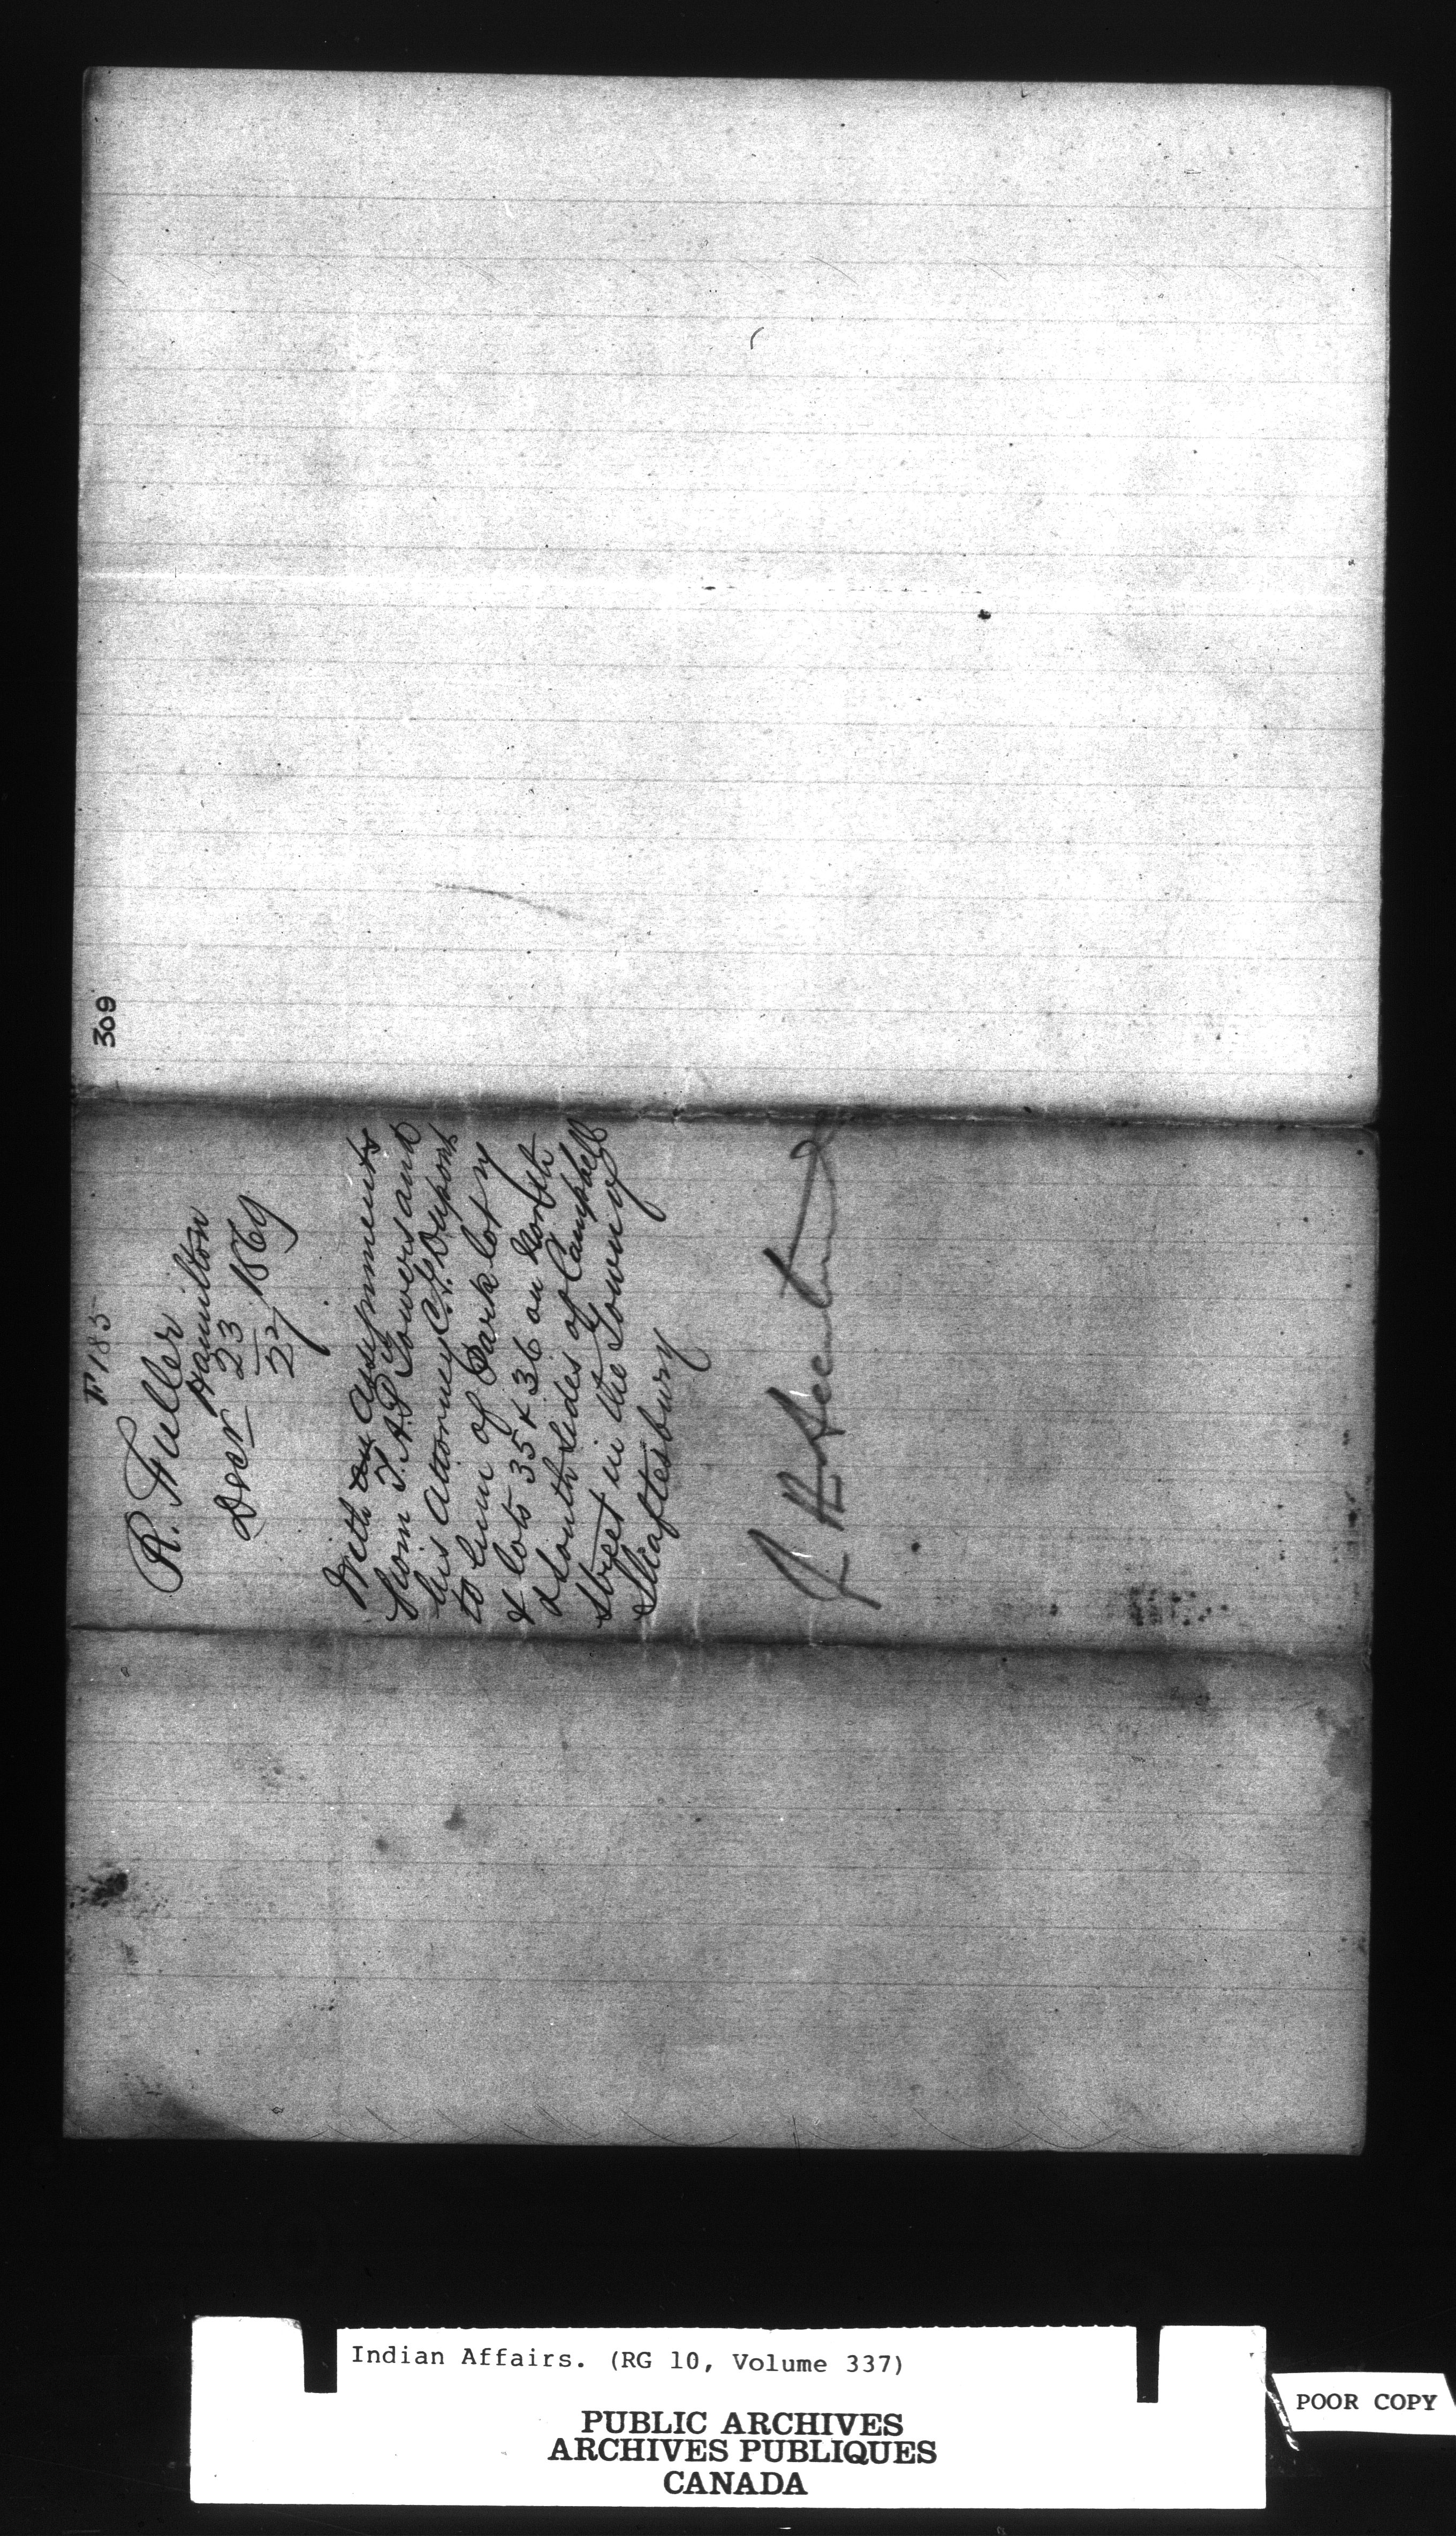 309
F 185
R. Fuller
Hamilton
Decr 23 1869
27
With an assignments
from T.A.P. Towers and
his Attorney C.V. Dupont
to him of Park lot M
& lots 35 & 36 on North
& South sides of Campbell
street in the Town of
Shaftesbury
Indian Affairs. (RG 10, Volume 337)
PUBLIC ARCHIVES
ARCHIVES PUBLIQUES
CANADA
POOR COPY